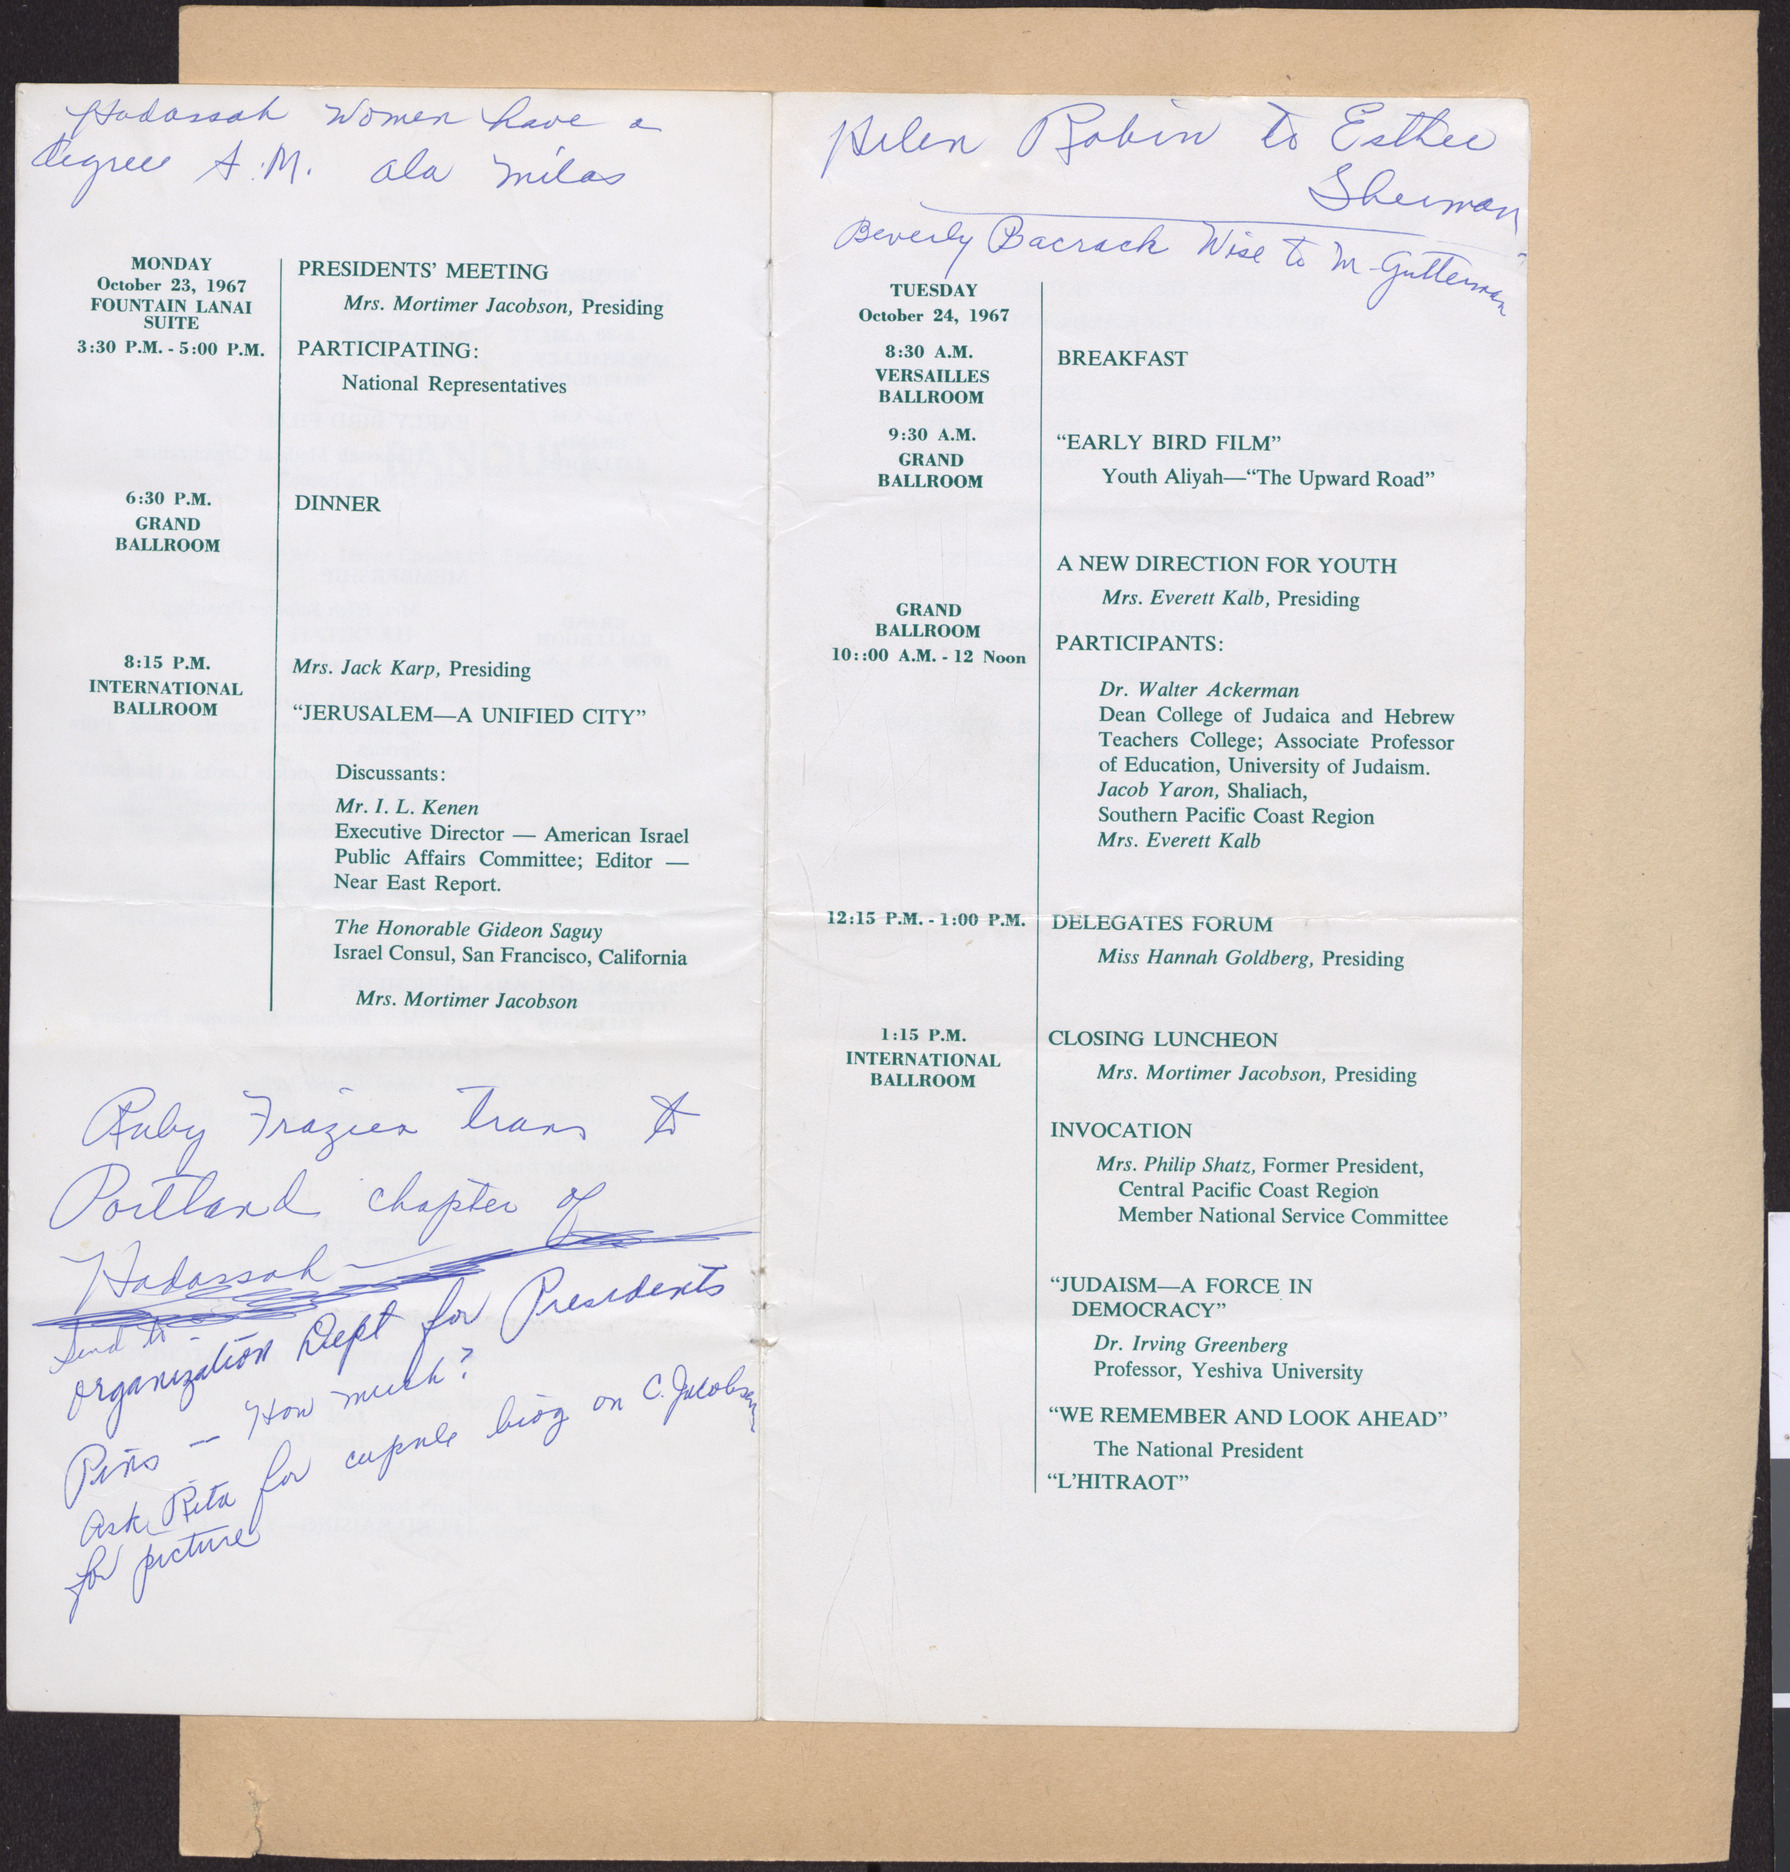 Hadassah Women have a
degree A.M. ala milas
MONDAY
October 23, 1967
FOUNTAIN LANAI
SUITE
3:30 P.M. - 5:00 P.M.
PRESIDENTS' MEETING
Mrs. Mortimer Jacobson, Presiding
PARTICIPATING:
National Representatives
6:30 P.M.
GRAND
BALLROOM
DINNER
8:15 P.M.
INTERNATIONAL
BALLROOM
Mrs. Jack Karp, Presiding
“JERUSALEM—A UNIFIED CITY”
Discussants:
Mr. I. L. Kenen
Executive Director — American Israel
Public Affairs Committee; Editor —
Near East Report.
The Honorable Gideon Saguy
Israel Consul, San Francisco, California
Mrs. Mortimer Jacobson
Ruby Frazien trans to
Portland chapter of
Hadassah
Send to -
organization Dept for Presidents
Pins — How much?
Ask Rita for capsule biog on C. Jacobson
for picture
Helen Robin to Esther
Sherman
Beverly Bacrach Wise to M. Gutterman
TUESDAY
October 24, 1967
8:30 A.M.
VERSAILLES
BALLROOM
BREAKFAST
9:30 A.M.
GRAND
BALLROOM
“EARLY BIRD FILM”
Youth Aliyah—“The Upward Road”
A NEW DIRECTION FOR YOUTH
Mrs. Everett Kalb, Presiding
GRAND
BALLROOM
10::00 A.M. - 12 Noon
PARTICIPANTS:
Dr. Walter Ackerman
Dean College of Judaica and Hebrew
Teachers College; Associate Professor
of Education, University of Judaism.
Jacob Yaron, Shaliach,
Southern Pacific Coast Region
Mrs. Everett Kalb
12:15 P.M. - 1:00 P.M.
DELEGATES FORUM
Miss Hannah Goldberg, Presiding
1:15 P.M.
INTERNATIONAL
BALLROOM
CLOSING LUNCHEON
Mrs. Mortimer Jacobson, Presiding
INVOCATION
Mrs. Philip Shatz, Former President,
Central Pacific Coast Region
Member National Service Committee
“JUDAISM—A FORCE IN
DEMOCRACY”
Dr. Irving Greenberg
Professor, Yeshiva University
“WE REMEMBER AND LOOK AHEAD”
The National President
“L'HITRAOT”